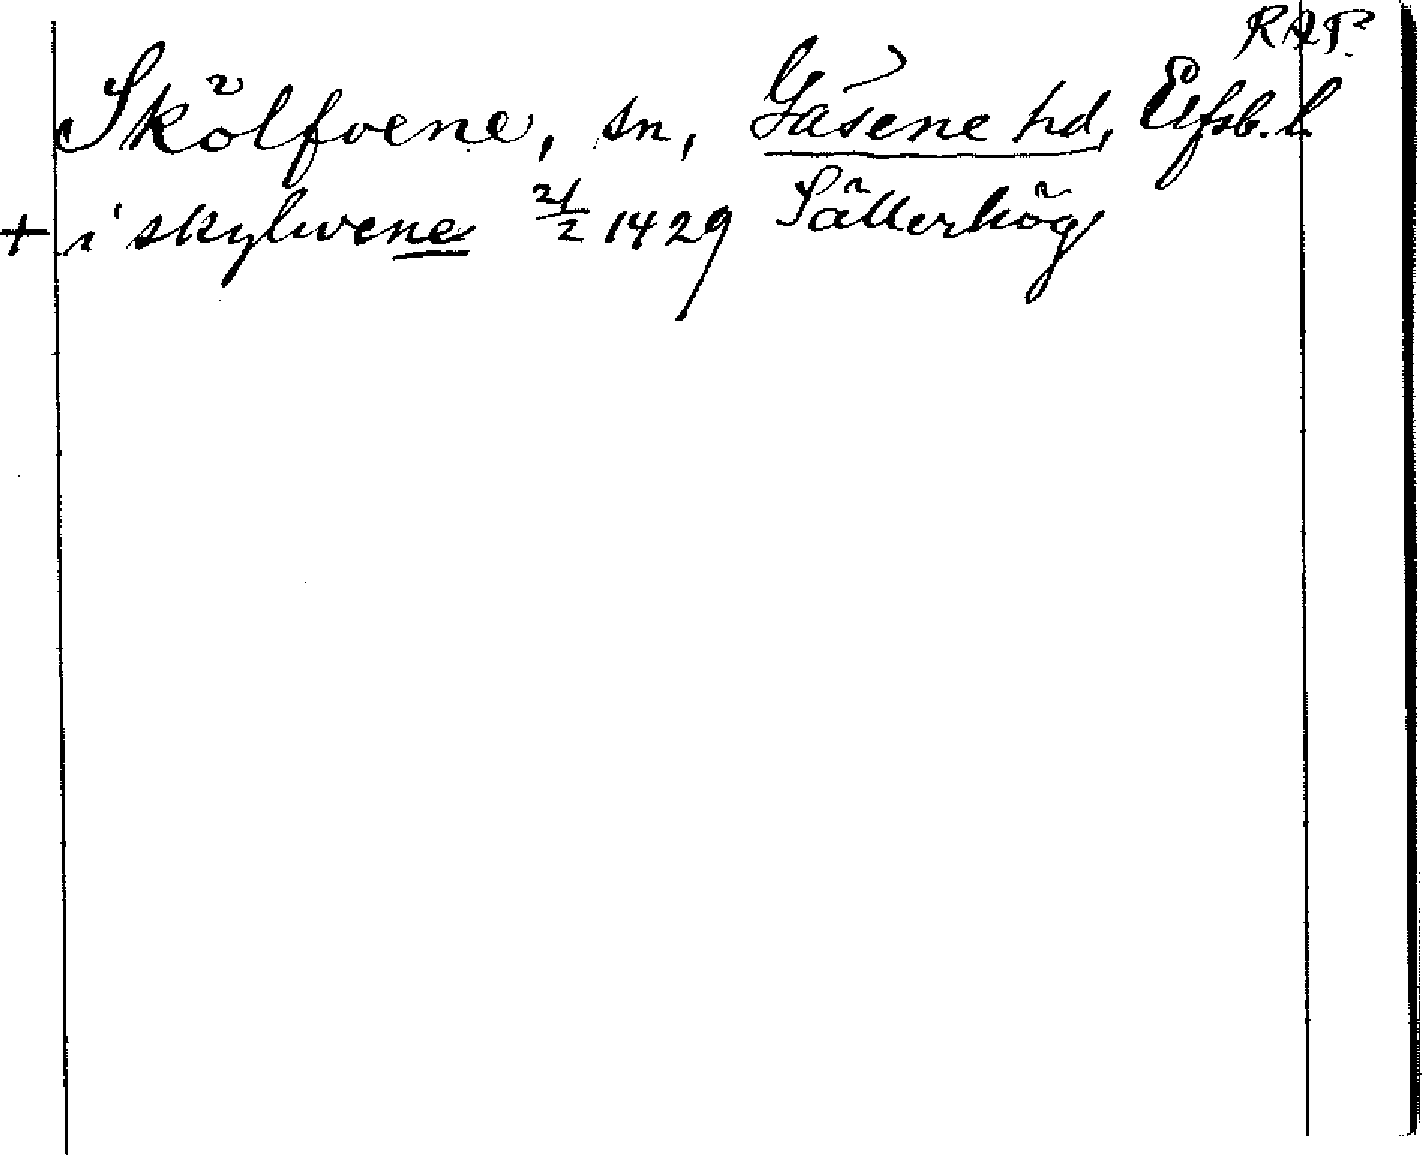 RAP.
Skölfvene, sn, Gäsene hd, Elfsb. l.
+ i skylwene 21/2 1429 Sällerhög